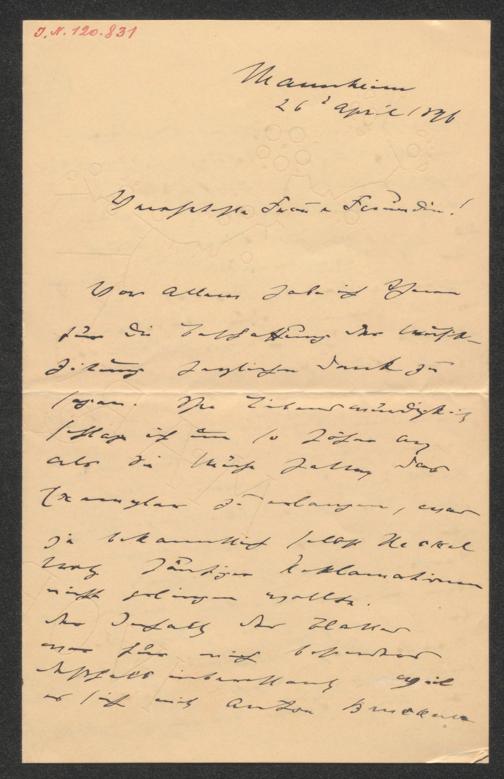 I.N. 120.831
Mannheim
26ᵗ April 1896
Verehrteste Frau u Freundin!
Vor Allem habe ich Ihnen
für die Beschaffung der Musik-
Zeitung herzlichen Dank zu
sagen. Ihre Liebenswürdigkeit
schlage ich um so höher an
als Sie Mühe hatten das
Exemplar zu erlangen, was
ja bekanntlich selbst Heckel
trotz häufiger Reklamationen
nicht gelingen wollte.
Der Inhalt der Blätter
war für mich besonders
deßhalb interessant weil
er sich mit Anton Bruckner